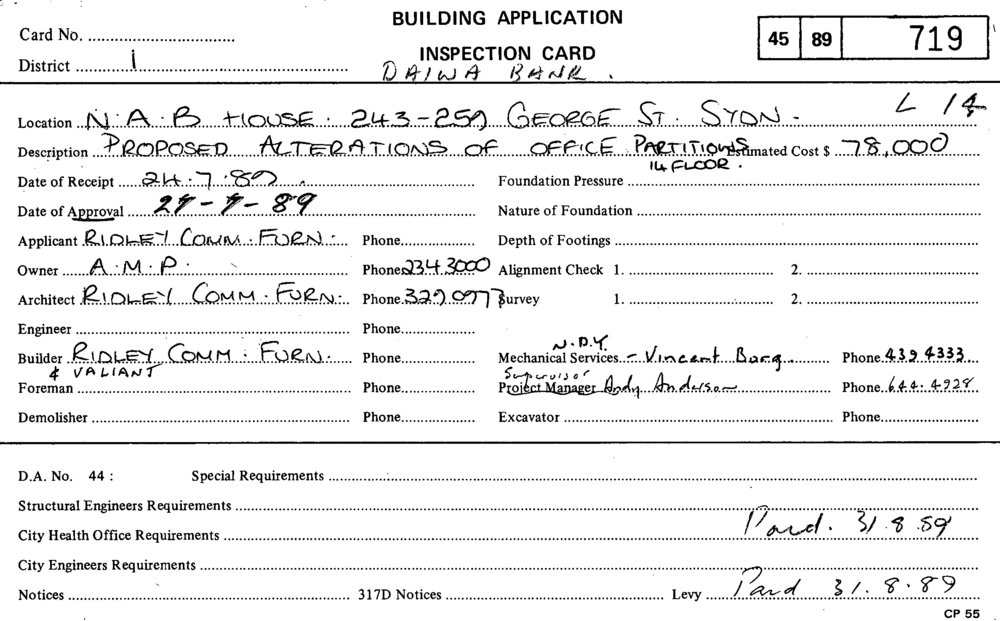 BUILDING APPLICATION
Card No. 45 89 719
INSPECTION CARD
District 1 DAIWA BANK.
L 14
Location N.A.B HOUSE. 243-259 GEORGE ST. SYDN.
Description PROPOSED ALTERATIONS OF OFFICE PARTITIONS Estimated Cost $ 78,000
14 FLOOR.
Date of Receipt 24.7.89. Foundation Pressure
Date of Approval 27-7-89 Nature of Foundation
Applicant RIDLEY COMM. FURN. Phone Depth of Footings
Owner A.M.P. Phone 234.3000 Alignment Check 1. 2.
Architect RIDLEY COMM. FURN. Phone 329 0977 Survey 1. 2.
Engineer Phone
N.D.Y.
Builder RIDLEY COMM. FURN. Phone Mechanical Services - Vincent Barg Phone 439 4333
& VALIANT Supervisor
Foreman Phone Project Manager Andy Anderson Phone 644.4928
Demolisher Phone Excavator Phone
D.A. No. 44 : Special Requirements
Structural Engineers Requirements
City Health Office Requirements Paid. 31.8.89
City Engineers Requirements
Notices 317D Notices Levy Paid 31.8.89
CP 55